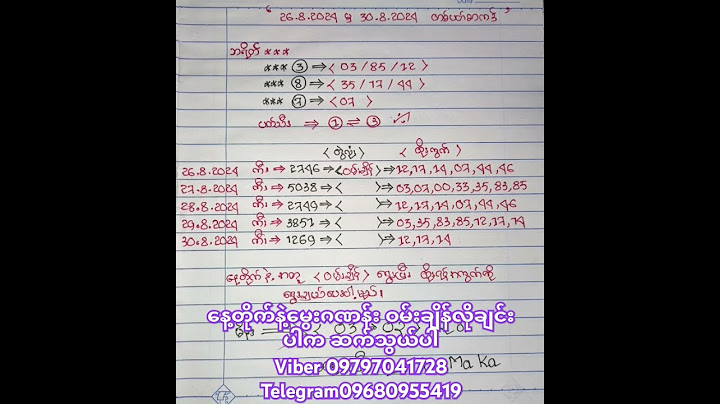 26.8.2024 မှ 30.8.2024 တစ်ပတ်စာကဒ်
ဘရိတ် ***
*** ③ ⇒ < 03 / 85 / 12 >
*** ⑧ ⇒ < 35 / 17 / 44 >
*** ⑦ ⇒ < 07 >
ပတ်သီး ⇒ ① ⇌ ③
<ထိုးကွက်>
26.8.2024 ကီး ⇒ 2746 ⇒ <ဝမ်းချိန်> ⇒ 12,17,14,07,44,46
27.8.2024 ကီး ⇒ 5038 ⇒ < > ⇒ 03,07,00,33,35,83,85
28.8.2024 ကီး ⇒ 2749 ⇒ < > ⇒ 12,17,14,07,44,46
29.8.2024 ကီး ⇒ 3851 ⇒ < > ⇒ 03,35,83,85,12,17,14
30.8.2024 ကီး ⇒ 1269 ⇒ < > ⇒ 12,17,14
<ဝမ်းချိန်>
နေ့တိုက်နဲ့မွေးဂဏန်း ဝမ်းချိန်လိုချင်း
ပါက ဆက်သွယ်ပါ
Viber 09797041728
Ma Ka
Telegram09680955419